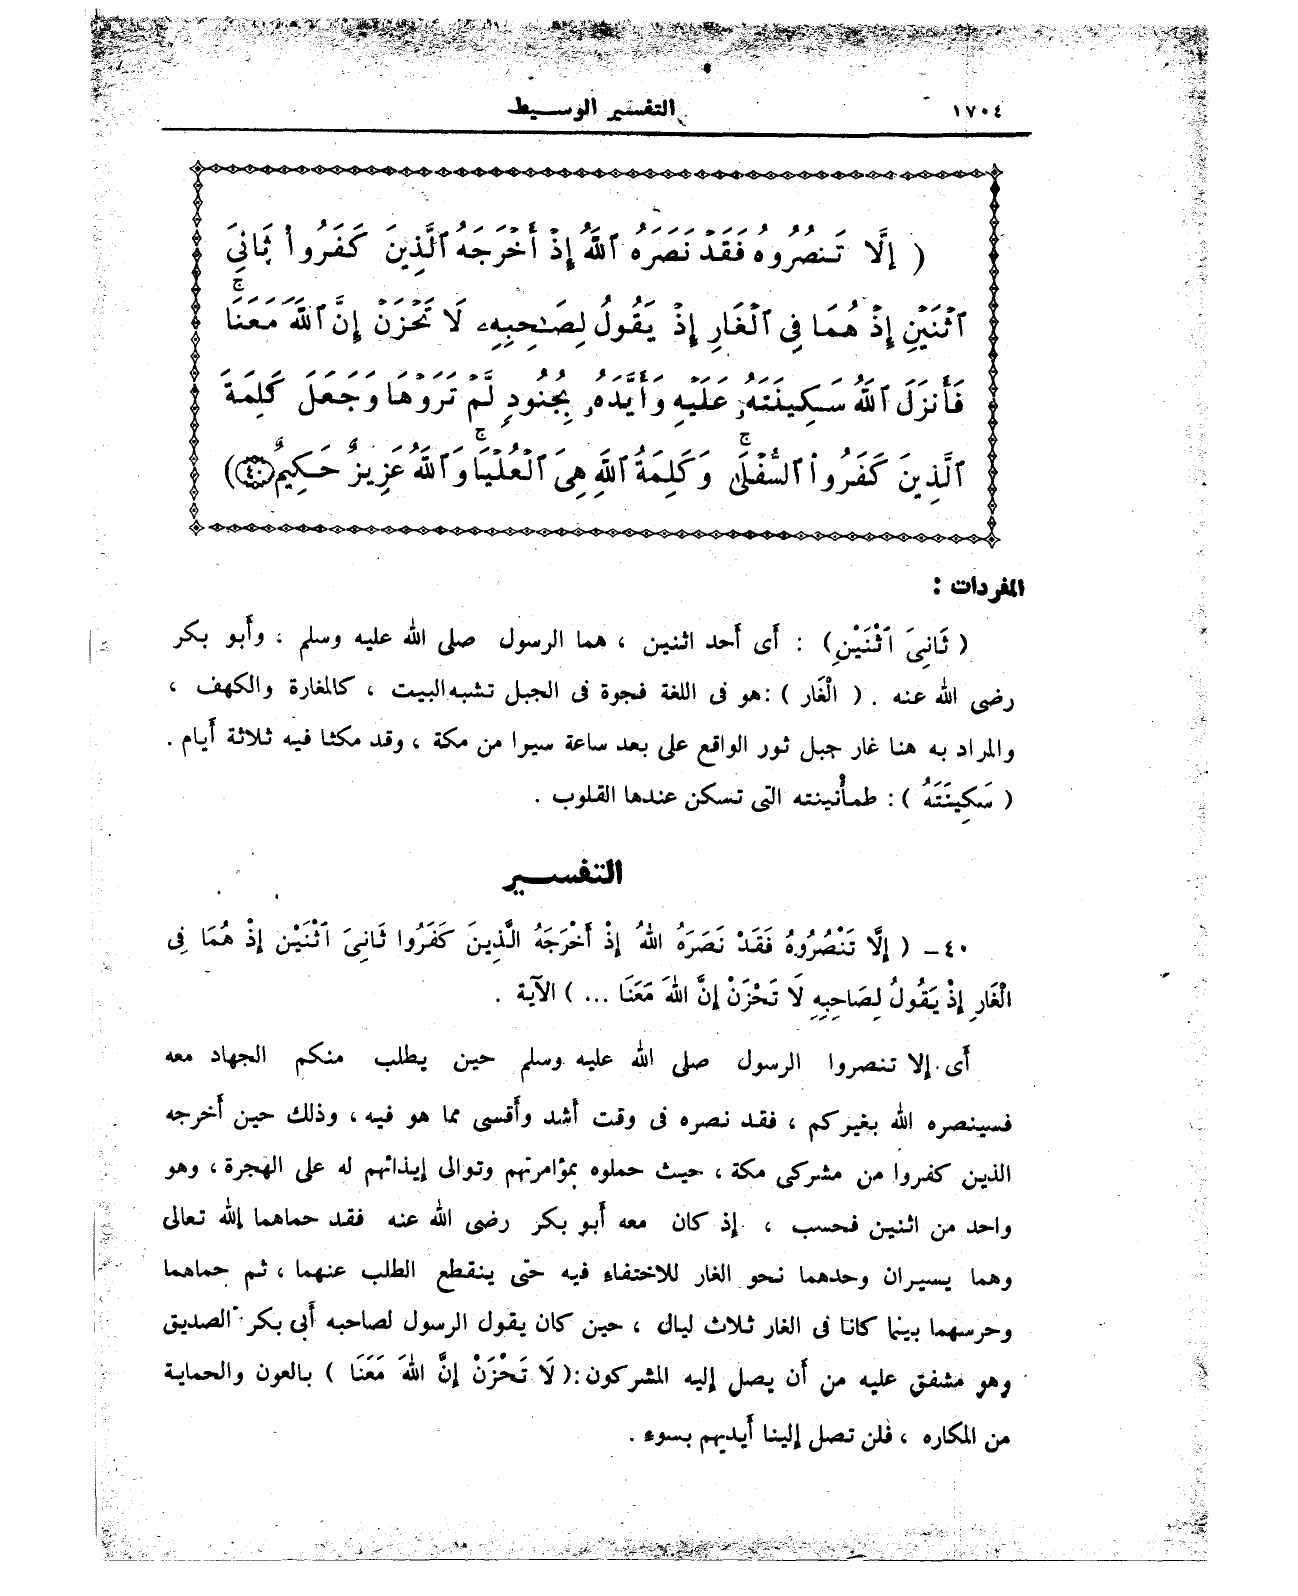 ١٧٠٤
التفسير الوسيط
( إِلَّا تَنصُرُوهُ فَقَدْ نَصَرَهُ ٱللَّهُ إِذْ أَخْرَجَهُ ٱلَّذِينَ كَفَرُوا۟ ثَانِىَ
ٱثْنَيْنِ إِذْ هُمَا فِى ٱلْغَارِ إِذْ يَقُولُ لِصَـٰحِبِهِۦ لَا تَحْزَنْ إِنَّ ٱللَّهَ مَعَنَا ۖ
فَأَنزَلَ ٱللَّهُ سَكِينَتَهُۥ عَلَيْهِ وَأَيَّدَهُۥ بِجُنُودٍ لَّمْ تَرَوْهَا وَجَعَلَ كَلِمَةَ
ٱلَّذِينَ كَفَرُوا۟ ٱلسُّفْلَىٰ ۗ وَكَلِمَةُ ٱللَّهِ هِىَ ٱلْعُلْيَا ۗ وَٱللَّهُ عَزِيزٌ حَكِيمٌ ٤٠ )
المفردات :
( ثَانِىَ ٱثْنَيْنِ ) : أَى أَحد اثنين ، هما الرسول صلى الله عليه وسلم ، وأَبو بكر
رضى الله عنه . ( الْغَار ) : هو فى اللغة فجوة فى الجبل تشبه البيت ، كالمغارة والكهف ،
والمراد به هنا غار جبل ثور الواقع على بعد ساعة سيرا من مكة ، وقد مكثا فيه ثلاثة أَيام .
( سَكِينَتَهُ ) : طمأْنينته التى تسكن عندها القلوب .
التفسير
٤٠ – ( إِلَّا تَنْصُرُوهُ فَقَدْ نَصَرَهُ اللهُ إِذْ أَخْرَجَهُ الَّذِينَ كَفَرُوا ثَانِىَ ٱثْنَيْنِ إِذْ هُمَا فِى
الْغَارِ إِذْ يَقُولُ لِصَاحِبِهِ لَا تَحْزَنْ إِنَّ اللهَ مَعَنَا ... ) الآية .
أَى إلا تنصروا الرسول صلى الله عليه وسلم حين يطلب منكم الجهاد معه
فسينصره الله بغيركم ، فقد نصره فى وقت أَشد وأَقسى مما هو فيه ، وذلك حين أَخرجه
الذين كفروا من مشركى مكة ، حيث حملوه بمؤامرتهم وتوالى إيذائهم له على الهجرة ، وهو
واحد من اثنين فحسب ، إذ كان معه أَبو بكر رضى الله عنه فقد حماهما الله تعالى
وهما يسيران وحدهما نحو الغار للاختفاء فيه حتى ينقطع الطلب عنهما ، ثم حماهما
وحرسهما بينما كانا فى الغار ثلاث ليال ، حين كان يقول الرسول لصاحبه أَبى بكر الصديق
وهو مشفق عليه من أَن يصل إليه المشركون : ( لَا تَحْزَنْ إِنَّ اللهَ مَعَنَا ) بالعون والحماية
من المكاره ، فلن تصل إلينا أَيديهم بسوء .